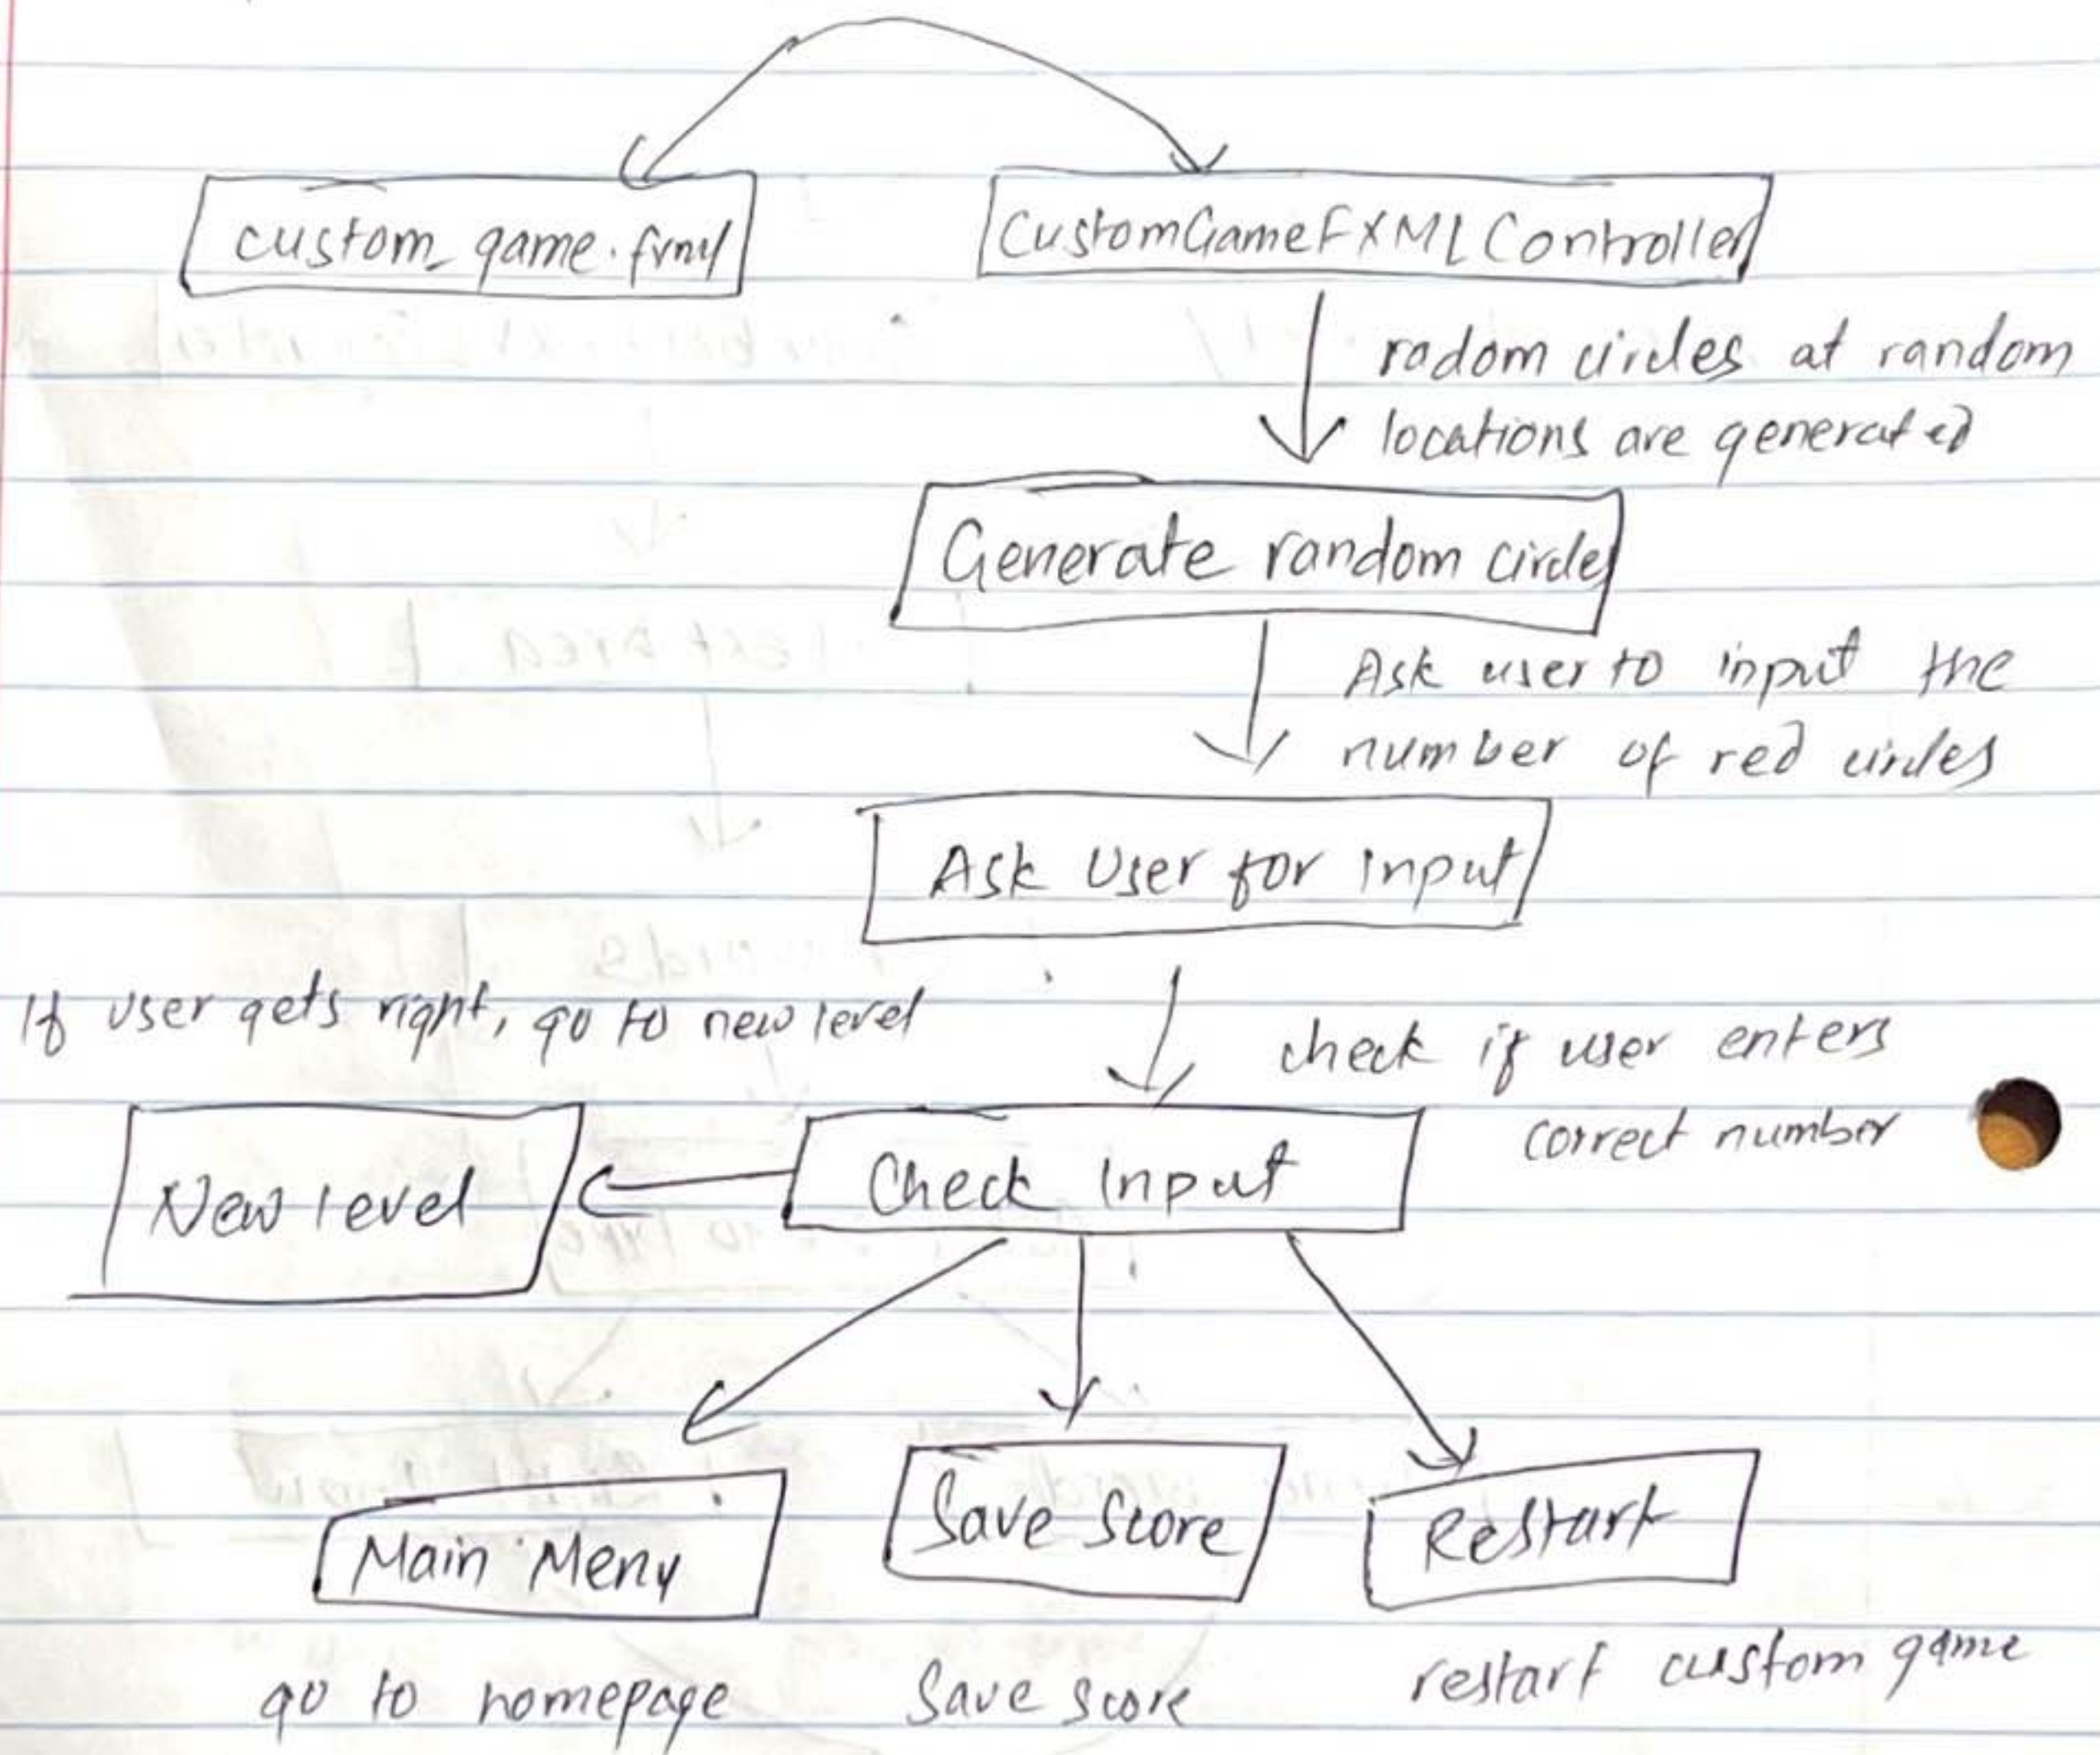 custom_game.fxml
CustomGameFXMLController
radom circles at random
locations are generated
Generate random circles
Ask user to input the
number of red circles
Ask User for input
If user gets right, go to new level
check if user enters
correct number
New level
Check Input
Main Menu
Save Score
Restart
go to homepage
Save score
restart custom game